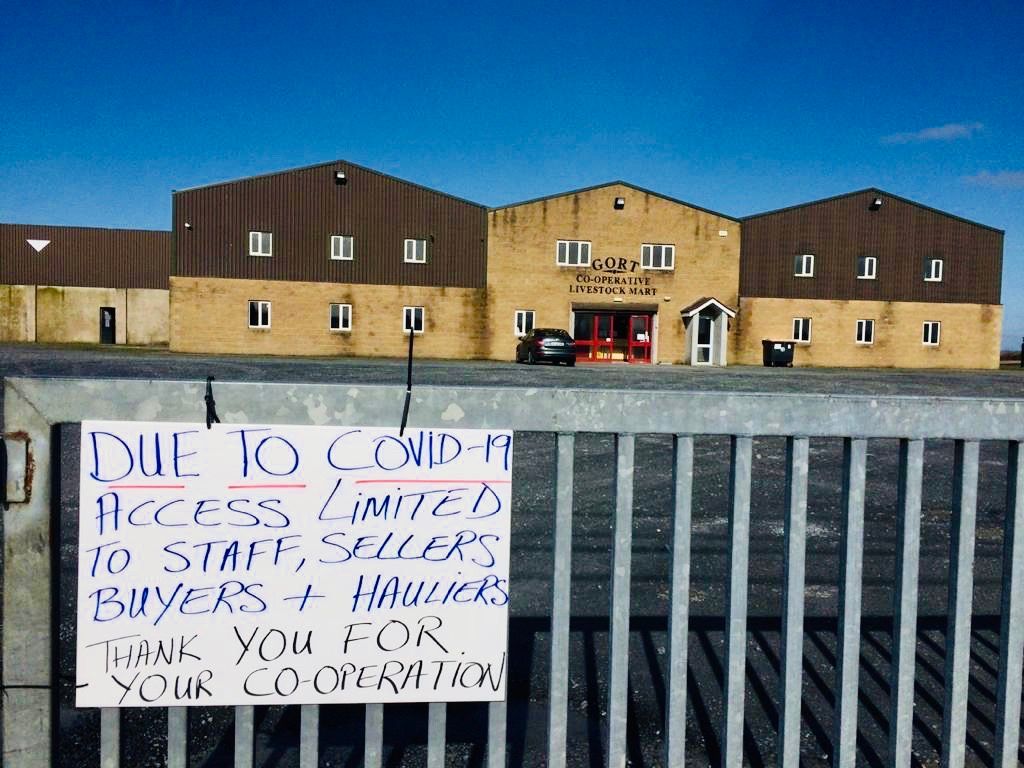 GORT
CO-OPERATIVE
LIVESTOCK MART
DUE TO COVID-19
ACCESS LIMITED
TO STAFF, SELLERS
BUYERS + HAULIERS
THANK YOU FOR
YOUR CO-OPERATION